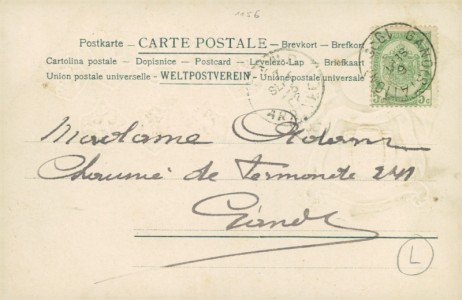 1156
Postkarte - CARTE POSTALE - Brevkort - Brefkort
Cartolina postale - Dopisnice - Postcard - Levelező-Lap - Briefkaart
Union postale universelle - WELTPOSTVEREIN - Unione postale universale
Madame Adam
Chaussée de Termonde 241
Gand
L